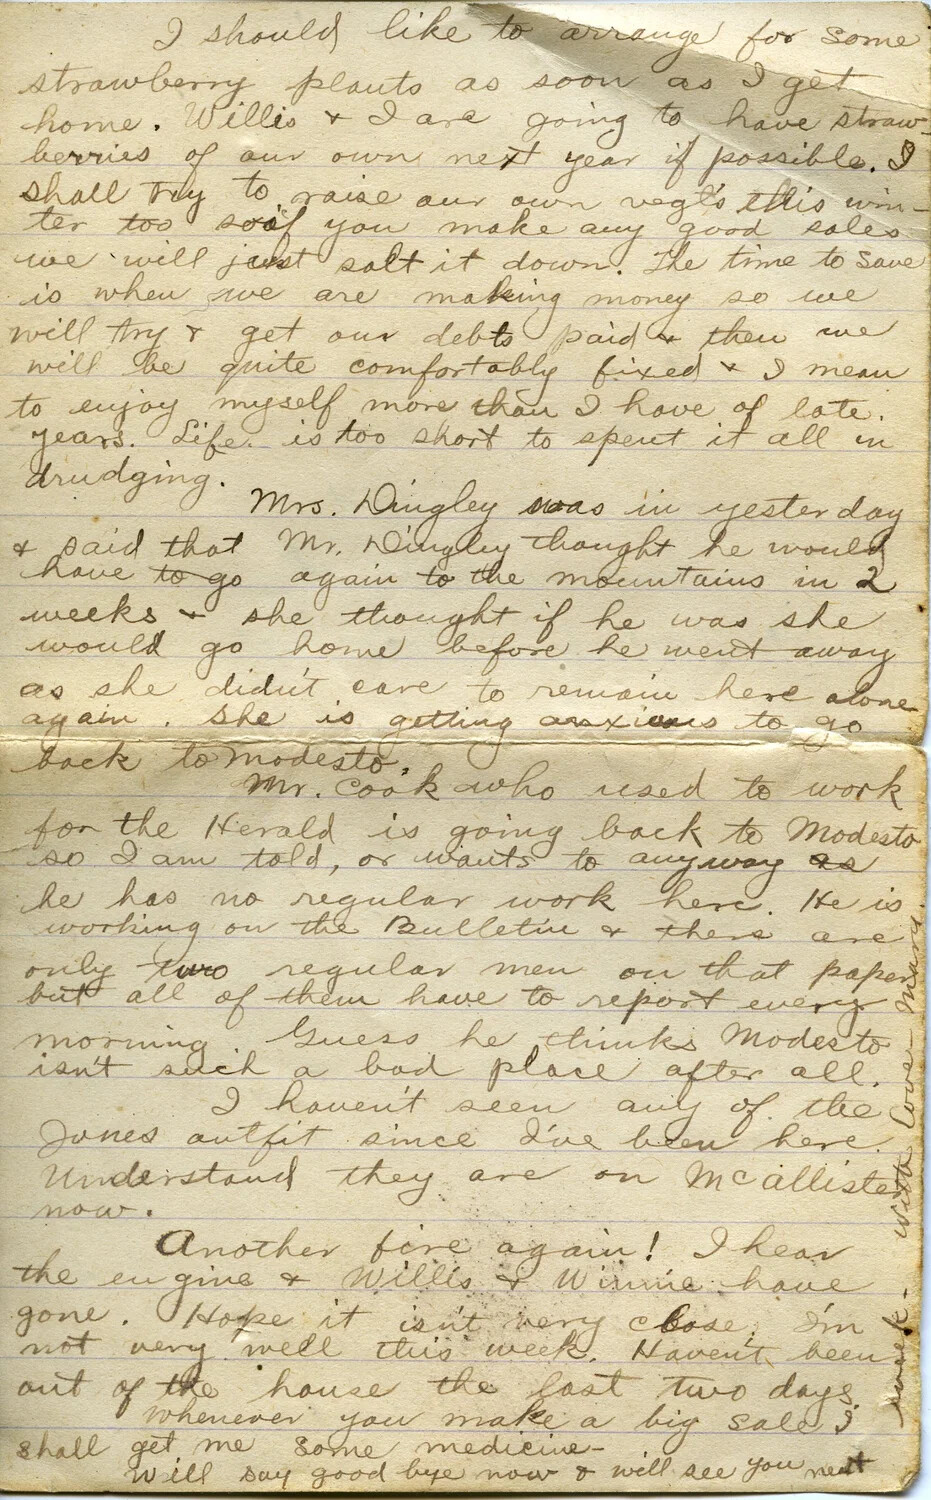 I should like to arrange for some
strawberry plants as soon as I get
home. Willis & I are going to have straw-
berries of our own next year if possible. I
shall try to raise our own vegt's this win-
ter too so if you make any good sales
we will just salt it down. The time to save
is when we are making money so we
will try & get our debts paid & then we
will be quite comfortably fixed & I mean
to enjoy myself more than I have of late.
years. Life. is too short to spent it all in
drudging.
Mrs. Dingley was in yesterday
& said that Mr. Dingley thought he would
have to go again to the mountains in 2
weeks & she thought if he was she
would go home before he went away
as she didn't care to remain here alone
again. She is getting anxious to go
back to Modesto.
Mr. Cook who used to work
for the Herald is going back to Modesto
so I am told, or wants to anyway as
he has no regular work here. He is
working on the Bulletin & there are
only two regular men on that paper
but all of them have to report every
morning. Guess he thinks Modesto
isn't such a bad place after all.
I haven't seen any of the
Jones outfit since I've been here.
Understand they are on McAllister
now.
Another fire again! I hear
the engine & Willis & Winnie have
gone. Hope it isn't very close. I'm
not very well this week. Haven't been
out of the house the last two days.
Whenever you make a big sale I
shall get me some medicine-
Will say good bye now & will see you next
week- With love- Mary.